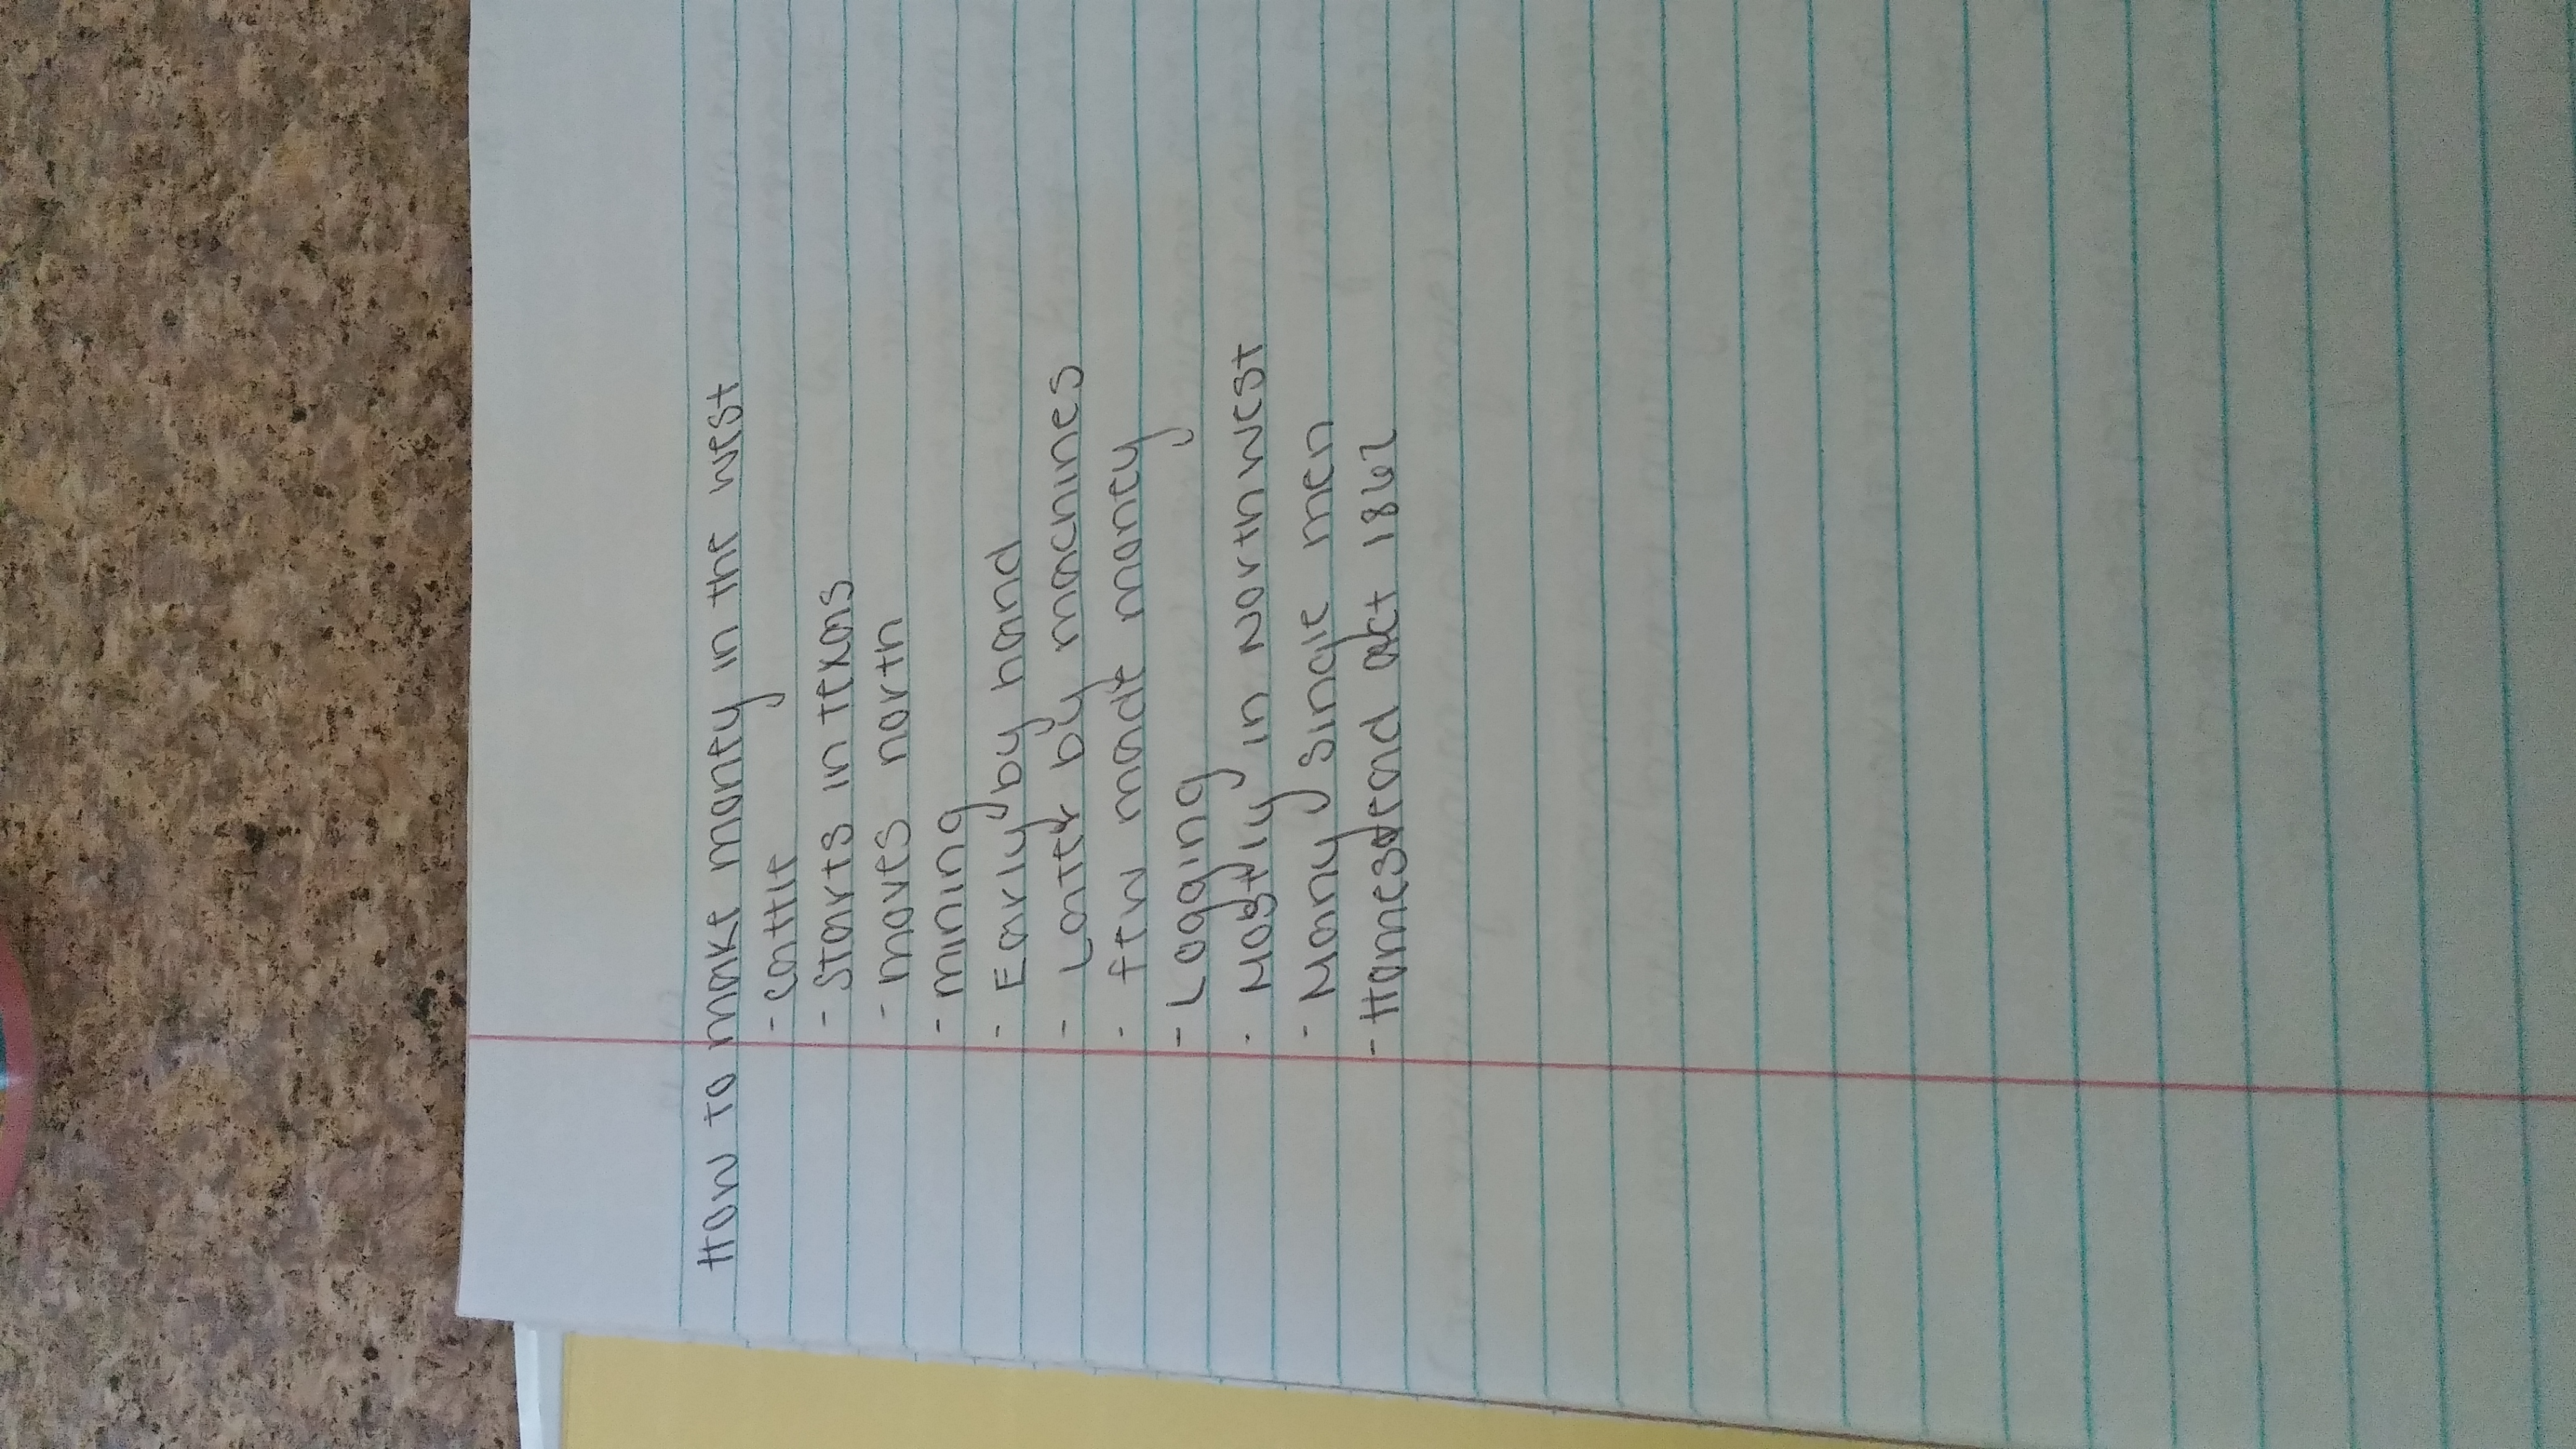 How to make money in the west
- cattle
- Starts in Texas
- moves north
- mining
- Early by hand
- Later by machines
- few made money
- Logging
- Mostly in Northwest
- Many single men
- Homestead act 1862